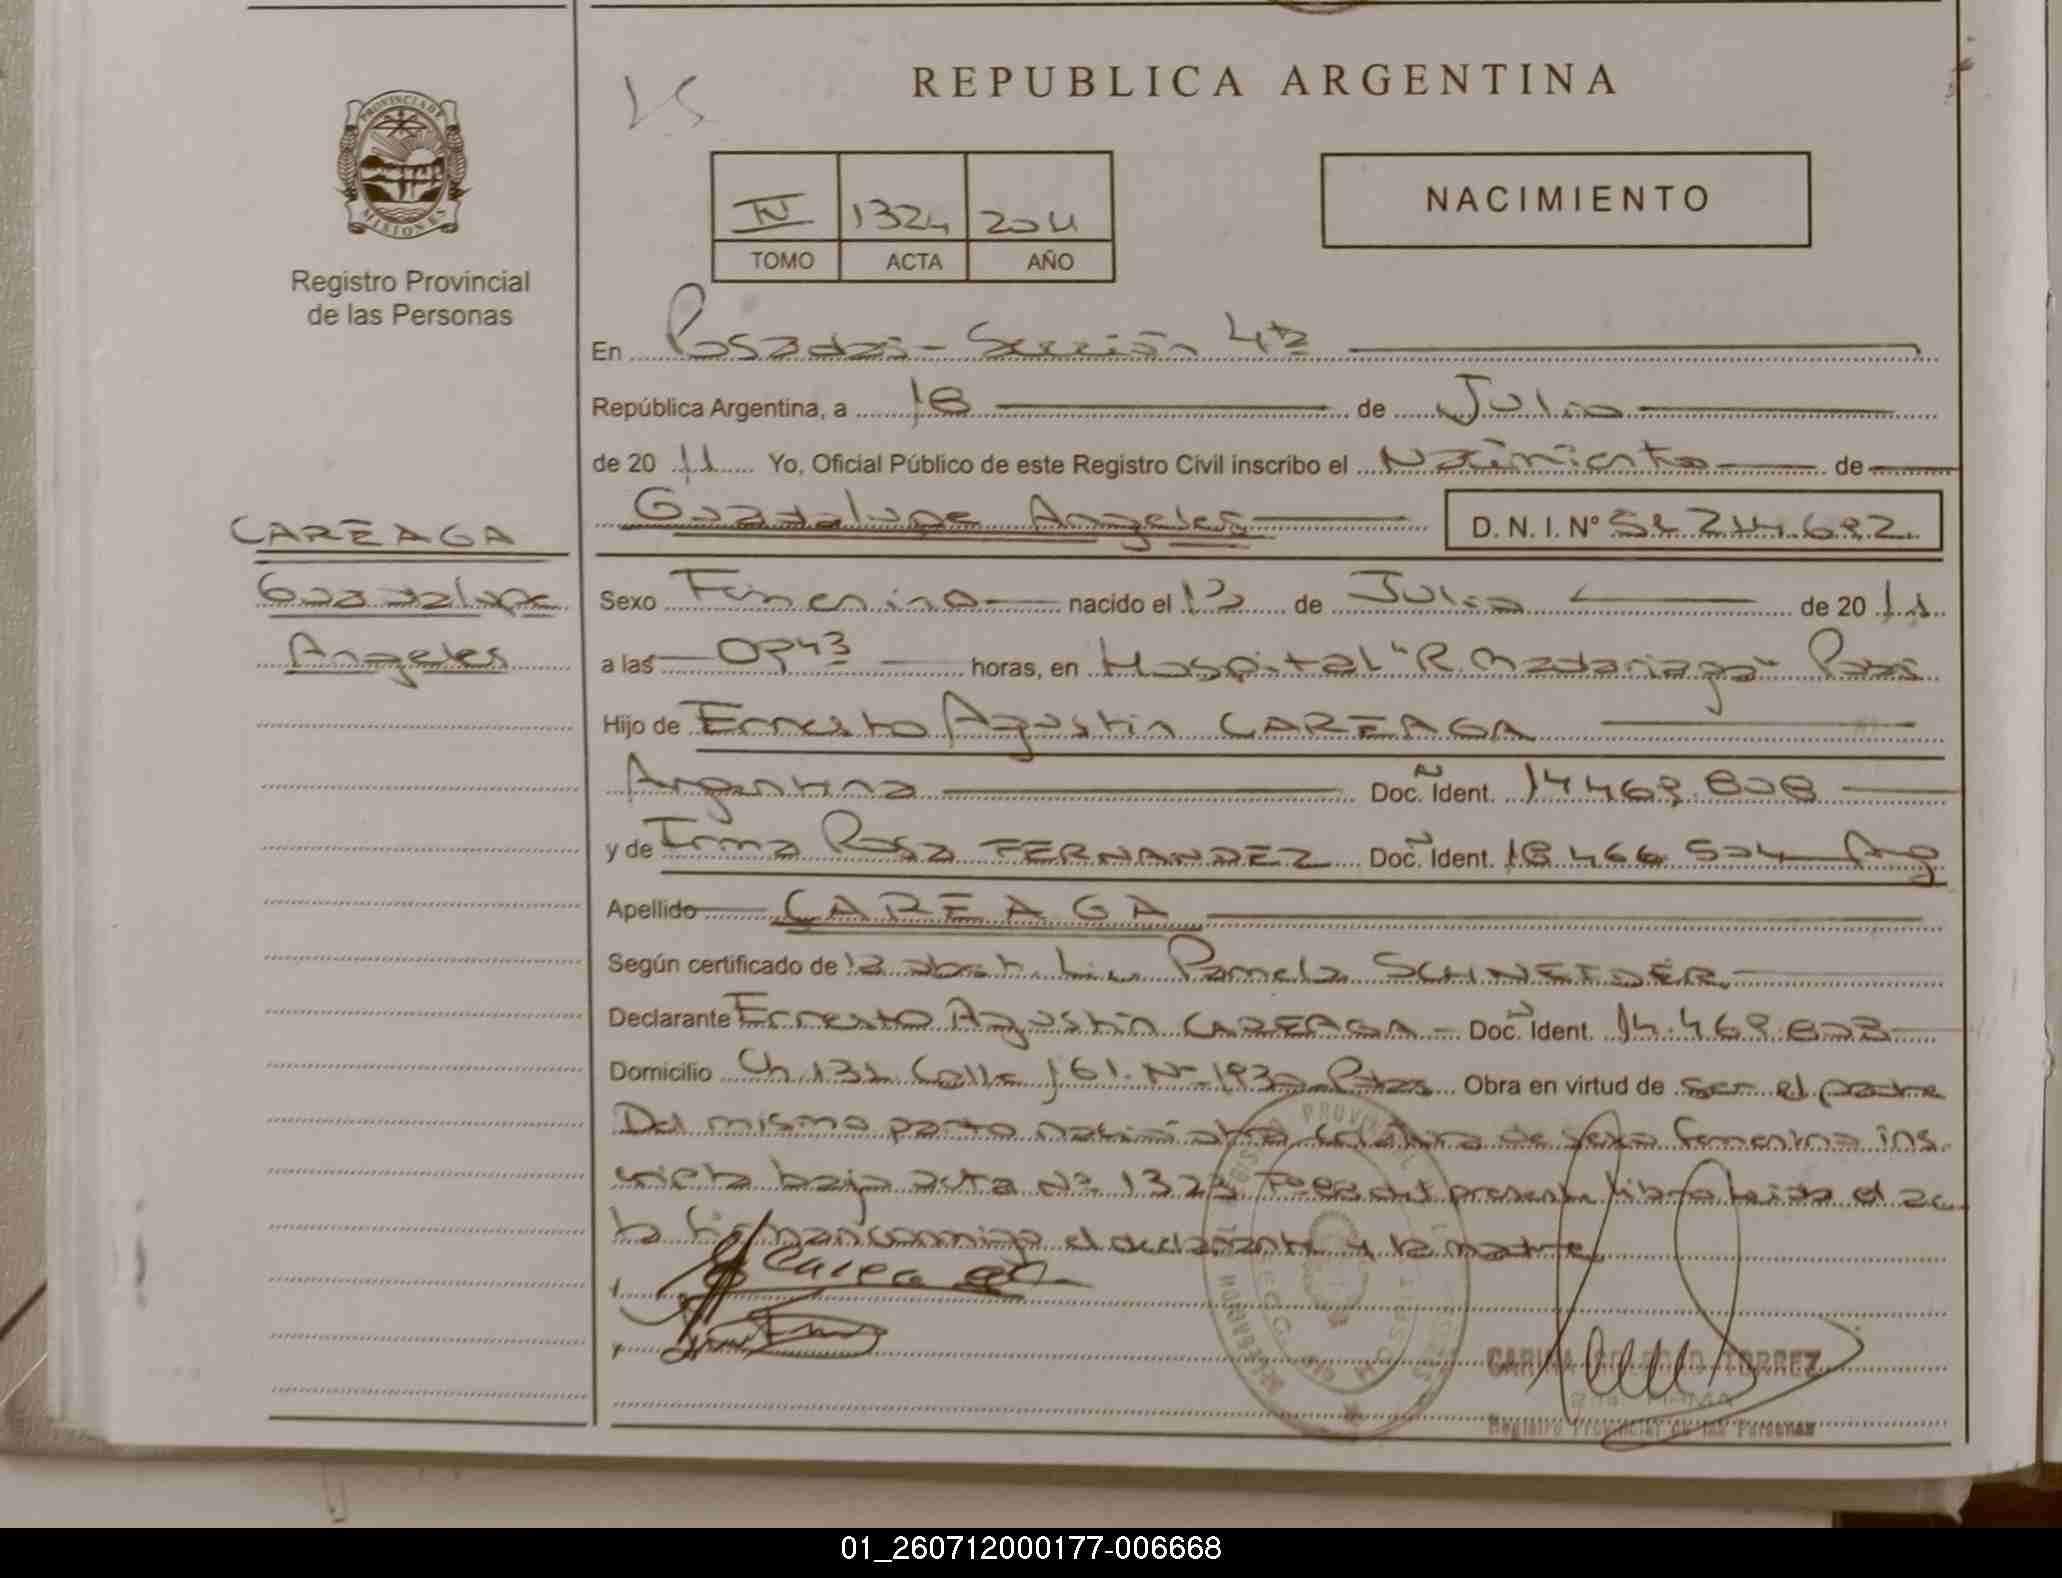 REPUBLICA ARGENTINA
PROVINCIA DE MISIONES
Registro Provincial
de las Personas
IV 1324 2011
TOMO ACTA AÑO
NACIMIENTO
En Posadas - Sección 4ta
República Argentina, a 18 de Julio
de 20 11 Yo, Oficial Público de este Registro Civil inscribo el Nacimiento de
Guadalupe Angeles D. N. I. Nº
CAREAGA
Guadalupe
Angeles
Sexo Femenino nacido el de Julio de 20 11
a las horas, en Hospital "R. Madariaga" Pdas
Hijo de Ernesto Agustin CAREAGA
Argentina Doc. Ident. 14.469.808
y de Irma Rosa FERNANDEZ Doc. Ident. 18.466.504 Arg
Apellido CAREAGA
Según certificado de la obstet. Lic. Pamela SCHNEIDER
Declarante Ernesto Agustin CAREAGA Doc. Ident. 14.469.808
Domicilio Ch. 131 Calle 161 Nº 1930 Pdas Obra en virtud de ser el padre
Del mismo parto nació otra criatura de sexo femenino ins-
cripta bajo acta Nº 1323 del presente libro leida el ac-
ta firman conmigo el declarante y la madre
CARINA SOLEDAD TORREZ
Registro Provincial de las Personas
01_260712000177-006668